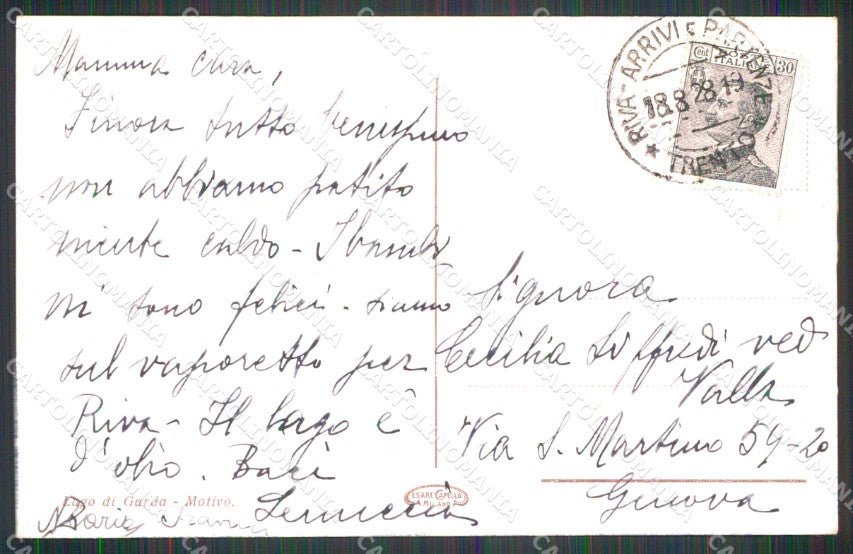 Mamma cara,
Finora tutto benissimo
non abbiamo patito
niente caldo - I bambi
ni sono felici - siamo
sul vaporetto per
Riva - Il lago è
d'olio. Baci
Maria
Lago di Garda - Motivo.
CESARE CAPELLO
MILANO
RIVA - ARRIVI E PARTENZE
18.8.28.19
TRENTO
Cent 30
POSTE
ITALIANE
Signora
Cecilia Siffredi ved
Valla
Via S. Martino 59-20
Genova
CARTOLINOMANIA